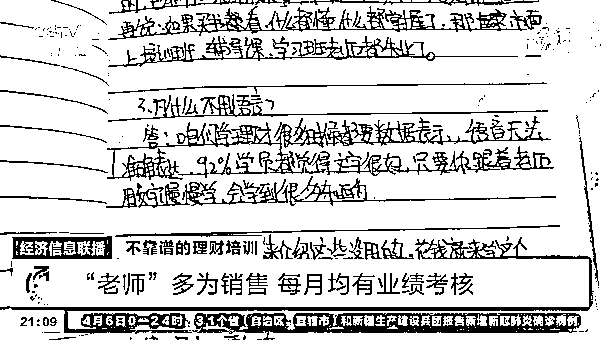 再说如果买书都看,什么都懂什么都掌握了,那
上培训班,辅导课,学习班老师都失业了。
3.为什么不用语言?
答:咱们学理财很多时候都要数据表示,语音无法
准确表达,92%学员都觉得文字很好,只要你跟着老师
用文字慢慢学,会学到很多东西的
经济信息联播 不靠谱的理财培训
“老师”多为销售 每月均有业绩考核
21:09 4月6日0—24时,31个省(自治区、直辖市)和新疆生产建设兵团报告新增新冠肺炎确诊病例